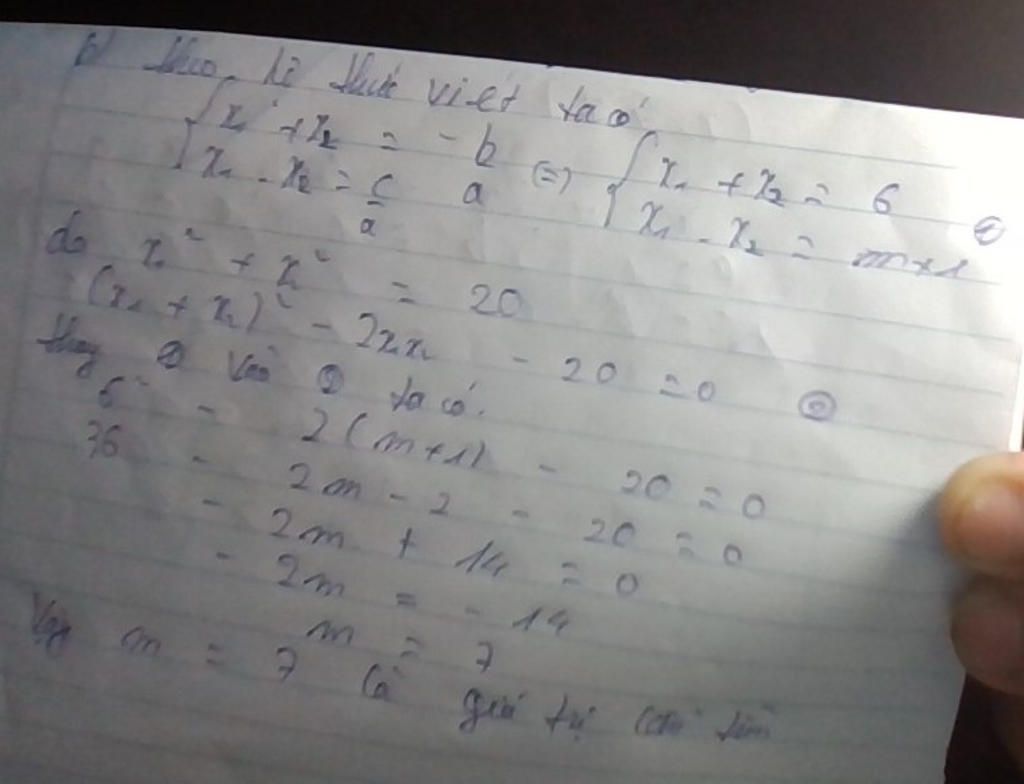 b) theo hệ thức viet ta có
{ x₁ + x₂ = -b/a
x₁ . x₂ = c/a (=) { x₁ + x₂ = 6
x₁ . x₂ = m+1 ①
do x₁² + x₂² = 20
(x₁ + x₂)² - 2x₁x₂ - 20 = 0 ②
thay ① vào ② ta có.
6² - 2(m+1) - 20 = 0
36 - 2m - 2 - 20 = 0
- 2m + 14 = 0
- 2m = - 14
m = 7
Vậy m = 7 là giá trị cần tìm